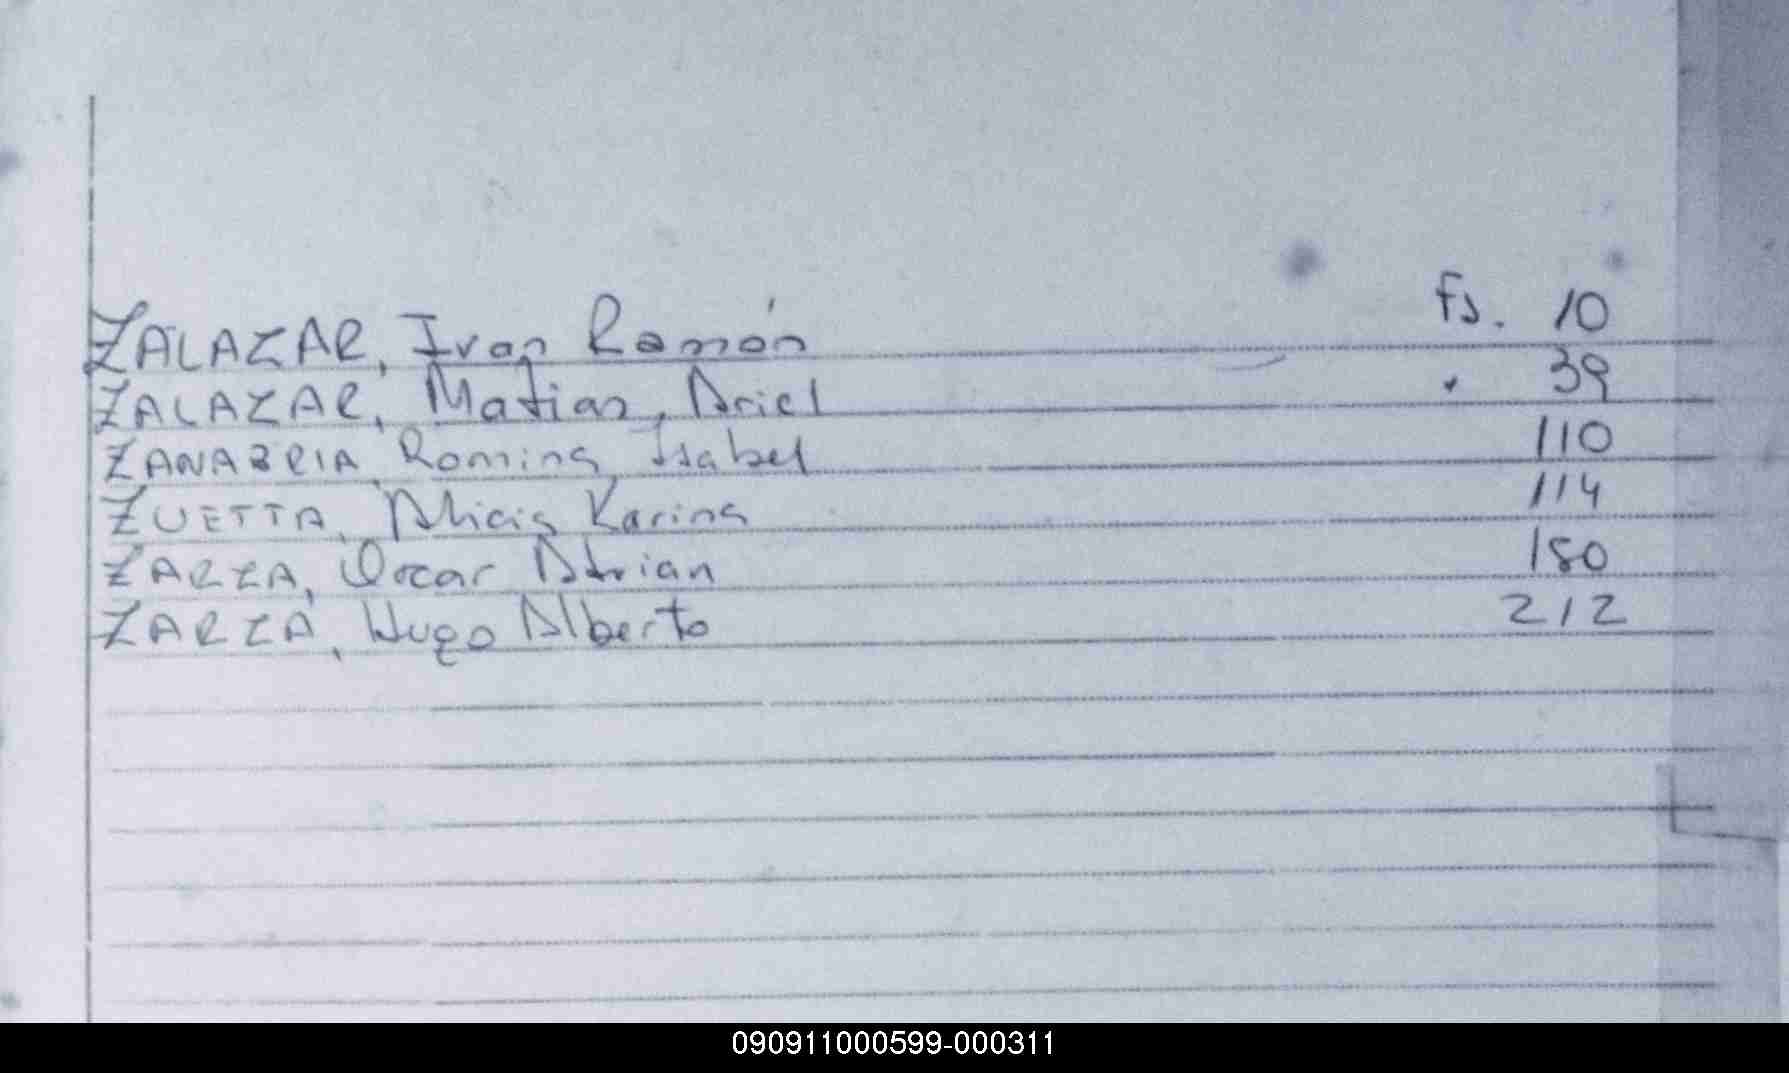 ZALAZAR, Ivan Ramón fs. 10
ZALAZAR, Matias, Ariel " 39
ZANABRIA, Romina Isabel 110
ZUETTA, Alicia Karina 114
ZARZA, Oscar Adrian 180
ZARZA, Hugo Alberto 212
090911000599-000311